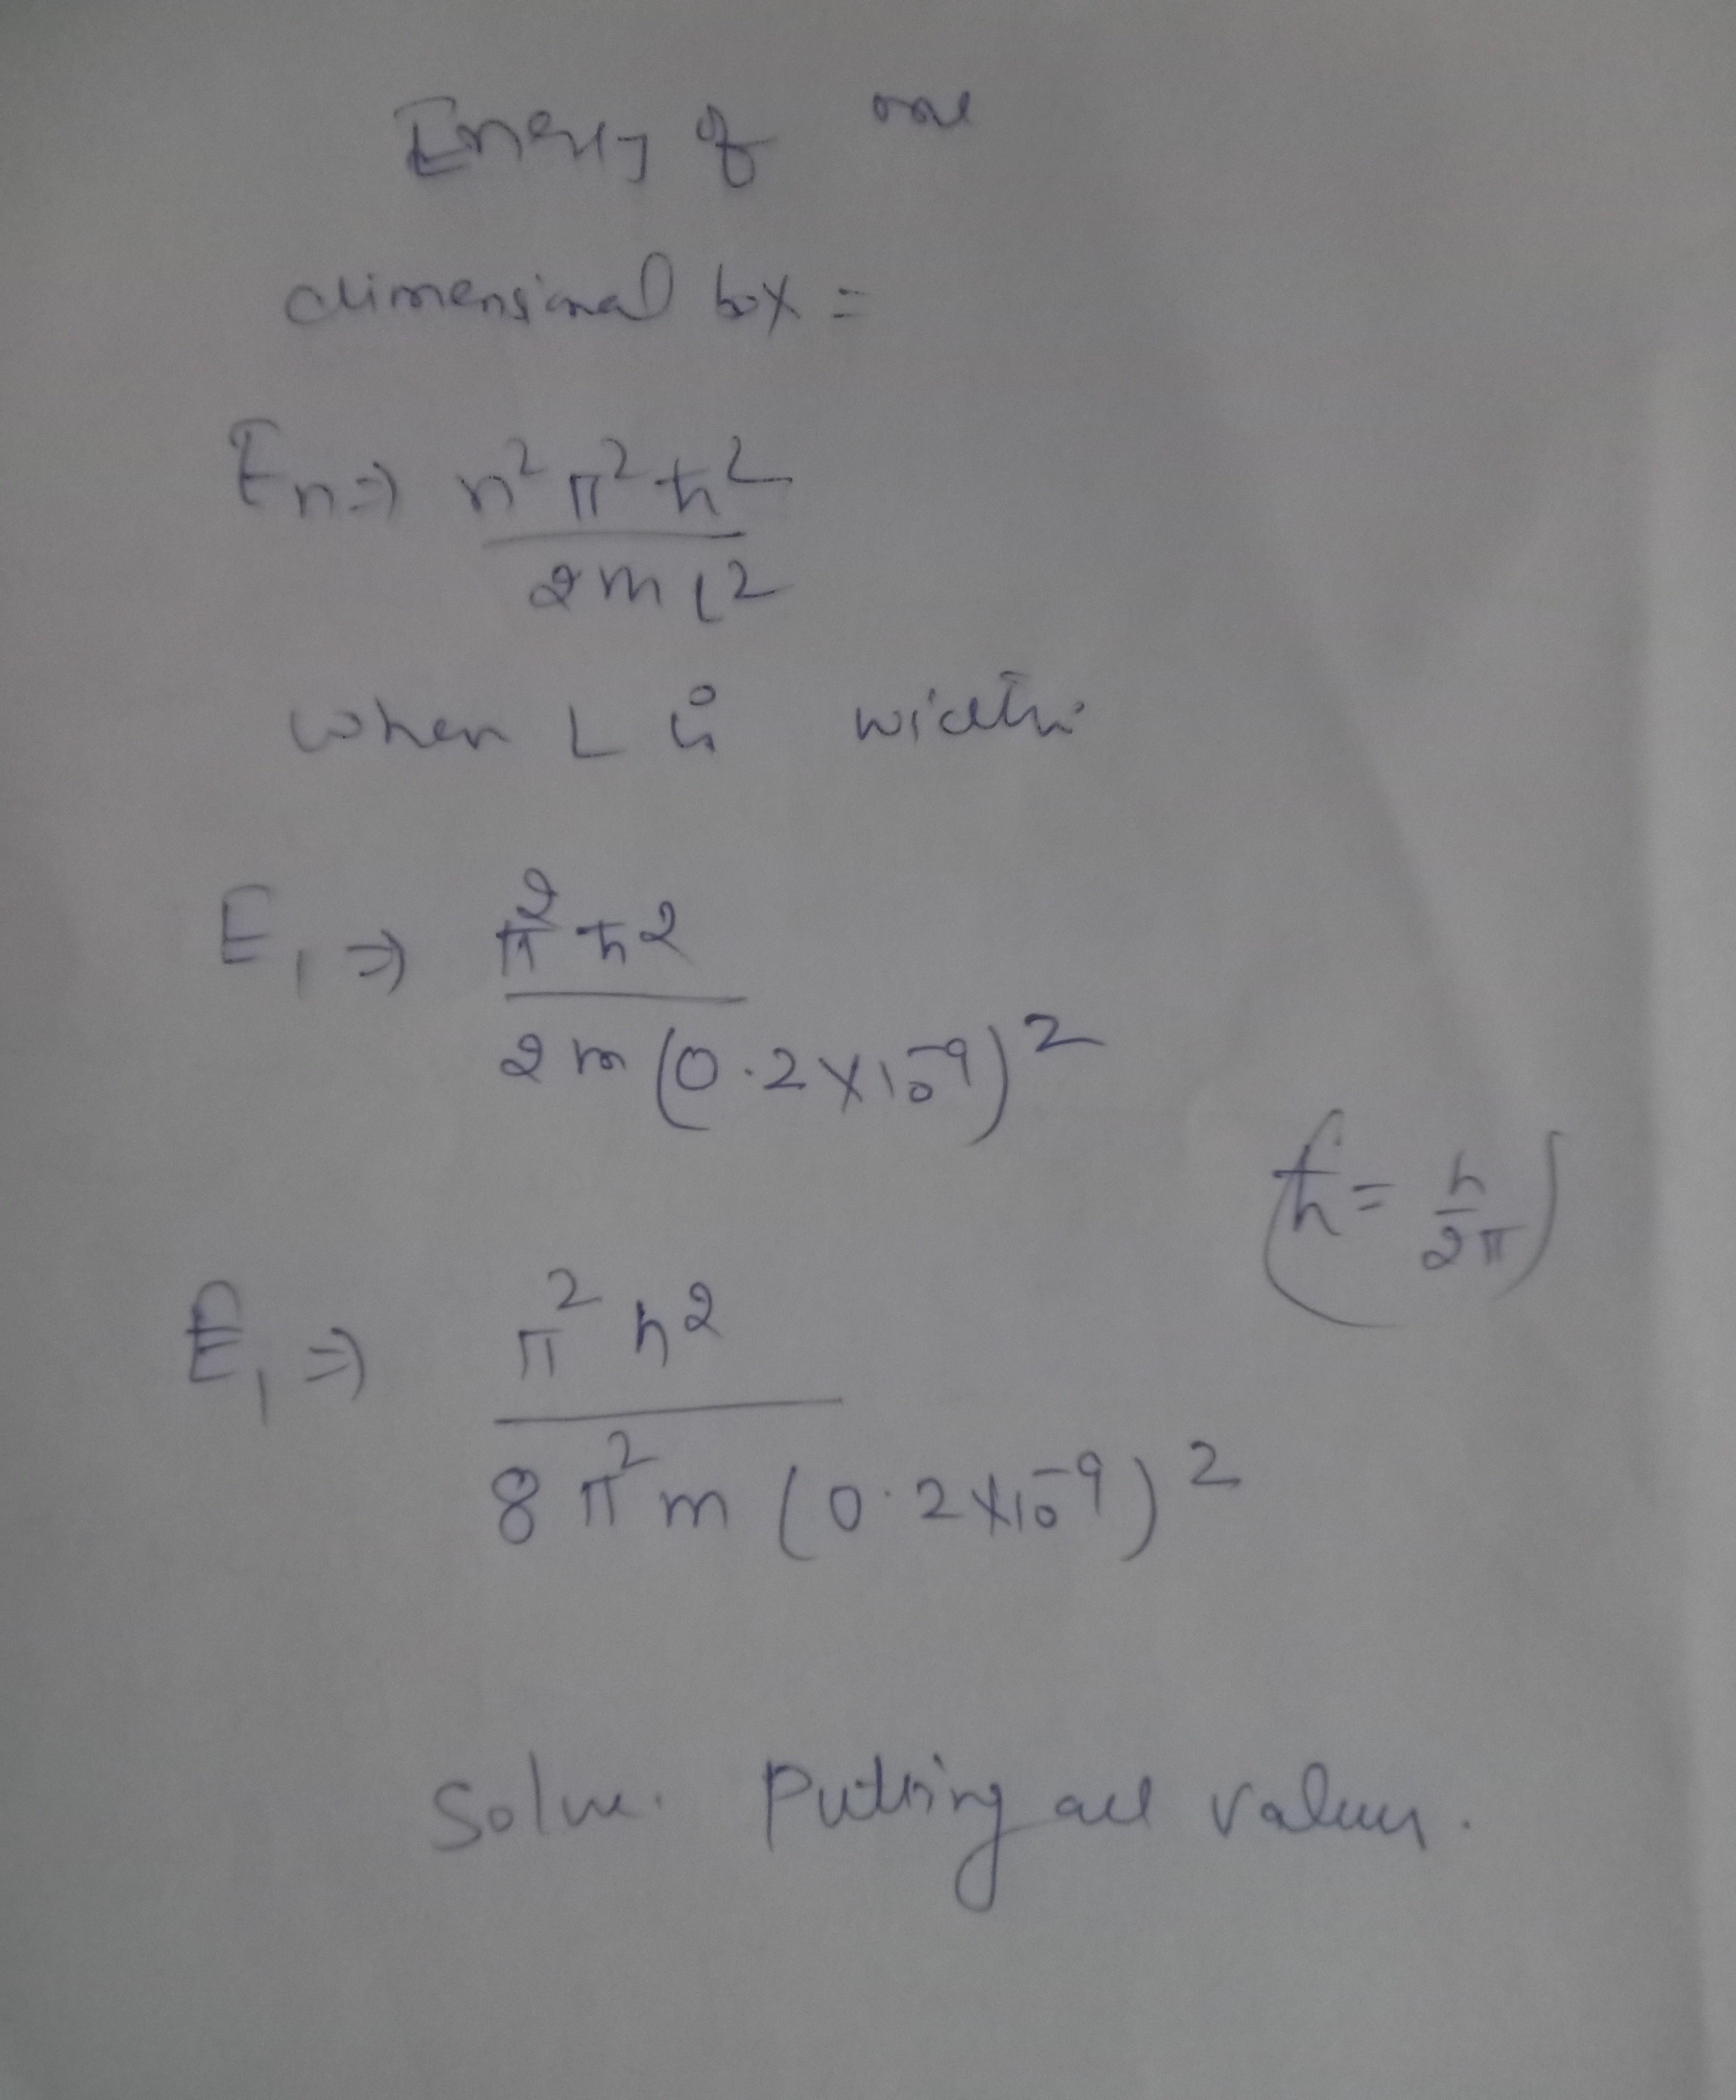 Energy of one
dimensional box =
En => n² π² ħ²
2 m L²
when L is width
E₁ => π² ħ²
2 m (0.2 × 10⁻⁹)²
(ħ = h
2π)
E₁ => π² h²
8 π² m (0.2 × 10⁻⁹)²
Solve. Putting all values.